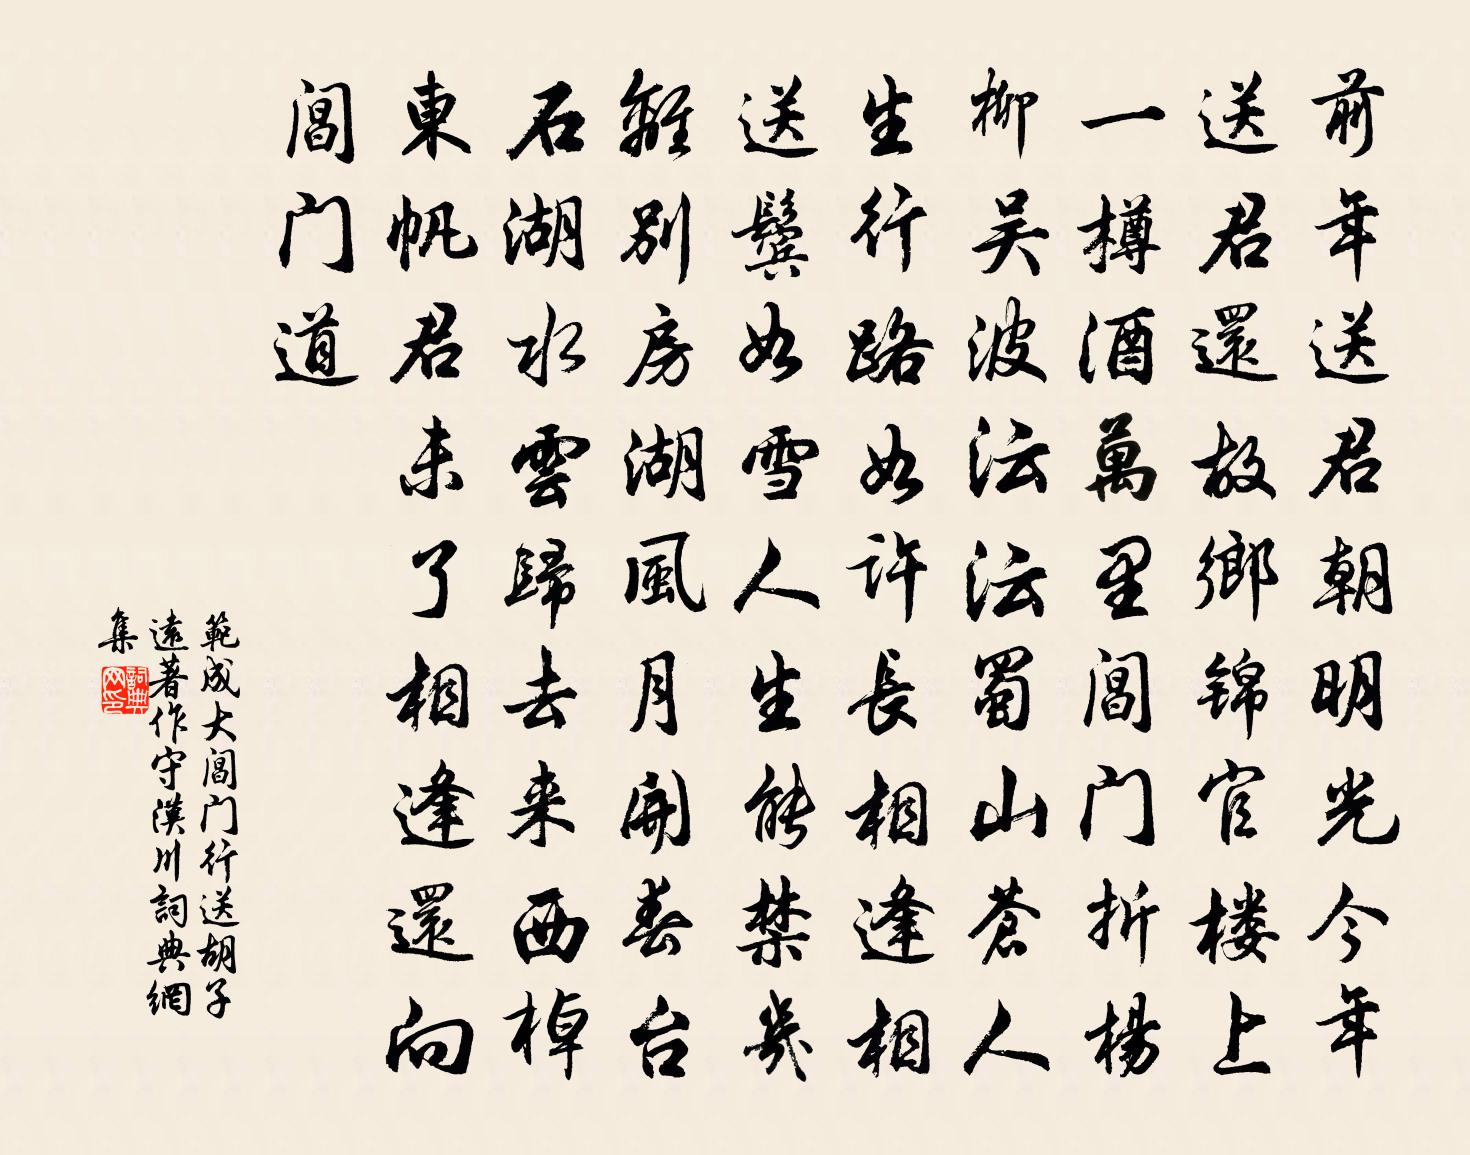 前年送君朝明光今年
送君還故鄉锦官楼上
一樽酒萬里閶门折楊
柳吴波沄沄蜀山蒼人
生行路如许長相逢相
送鬓如雪人生能禁幾
離别房湖風月開春台
石湖水雲歸去来西棹
東帆君未了相逢還向
閶门道
範成大閶门行送胡子
遠著作守漢川詞典網
集
詞典
网印